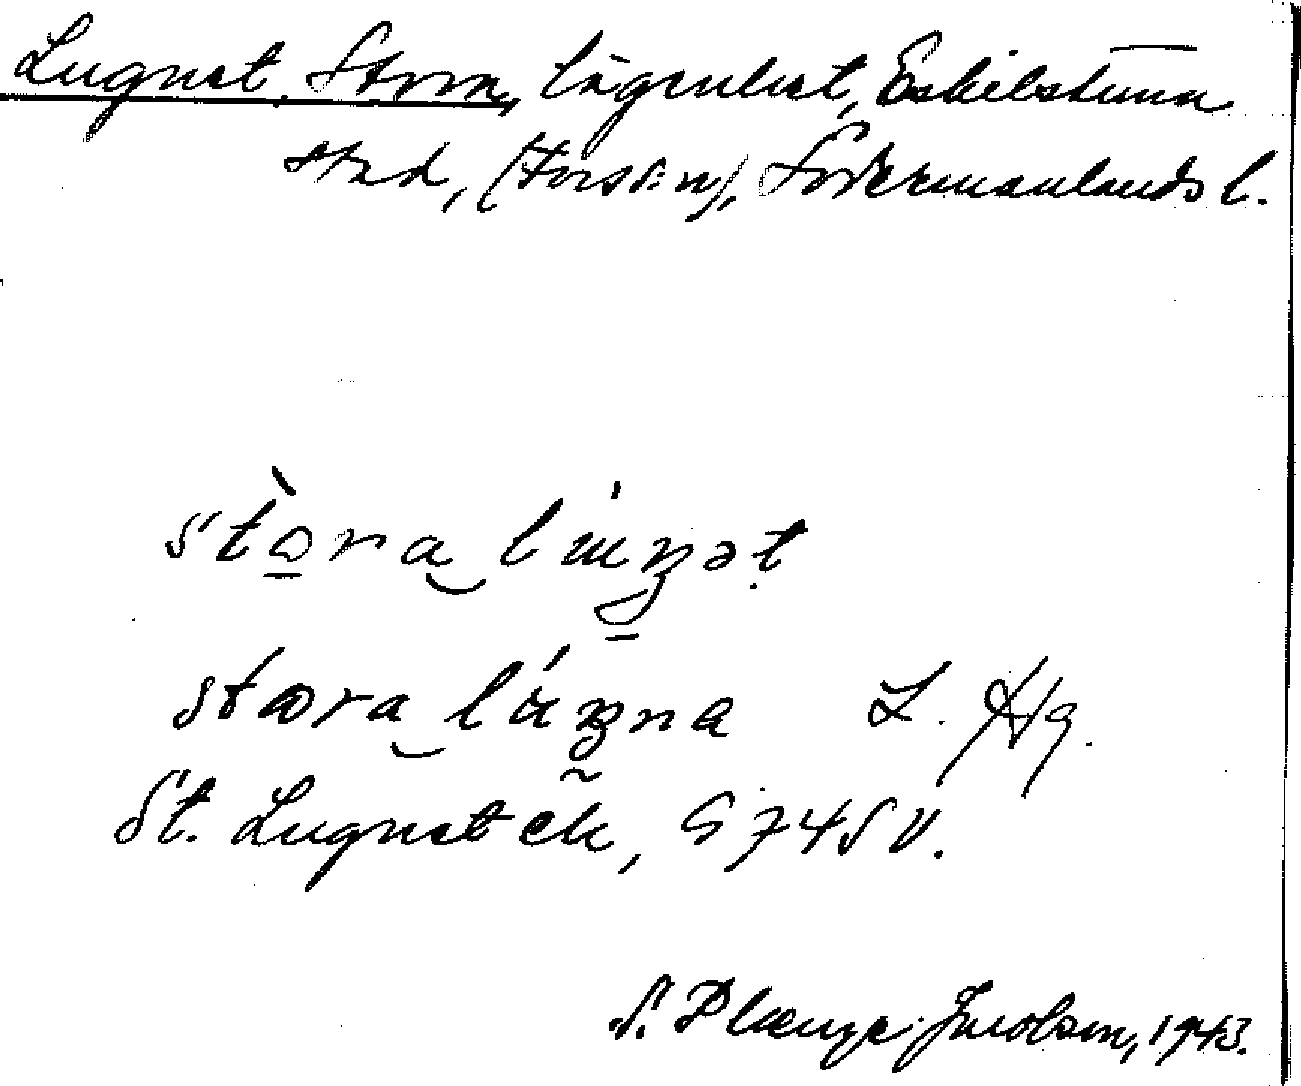 Lugnet, Stora, lägenhet, Eskilstuna
stad, (Fors sn), Södermanlands l.
stora lugnet
stora lugna L. Hg.
St. Lugnet ek, G 74 S V.
S. Plaenge Jacobson, 1943.